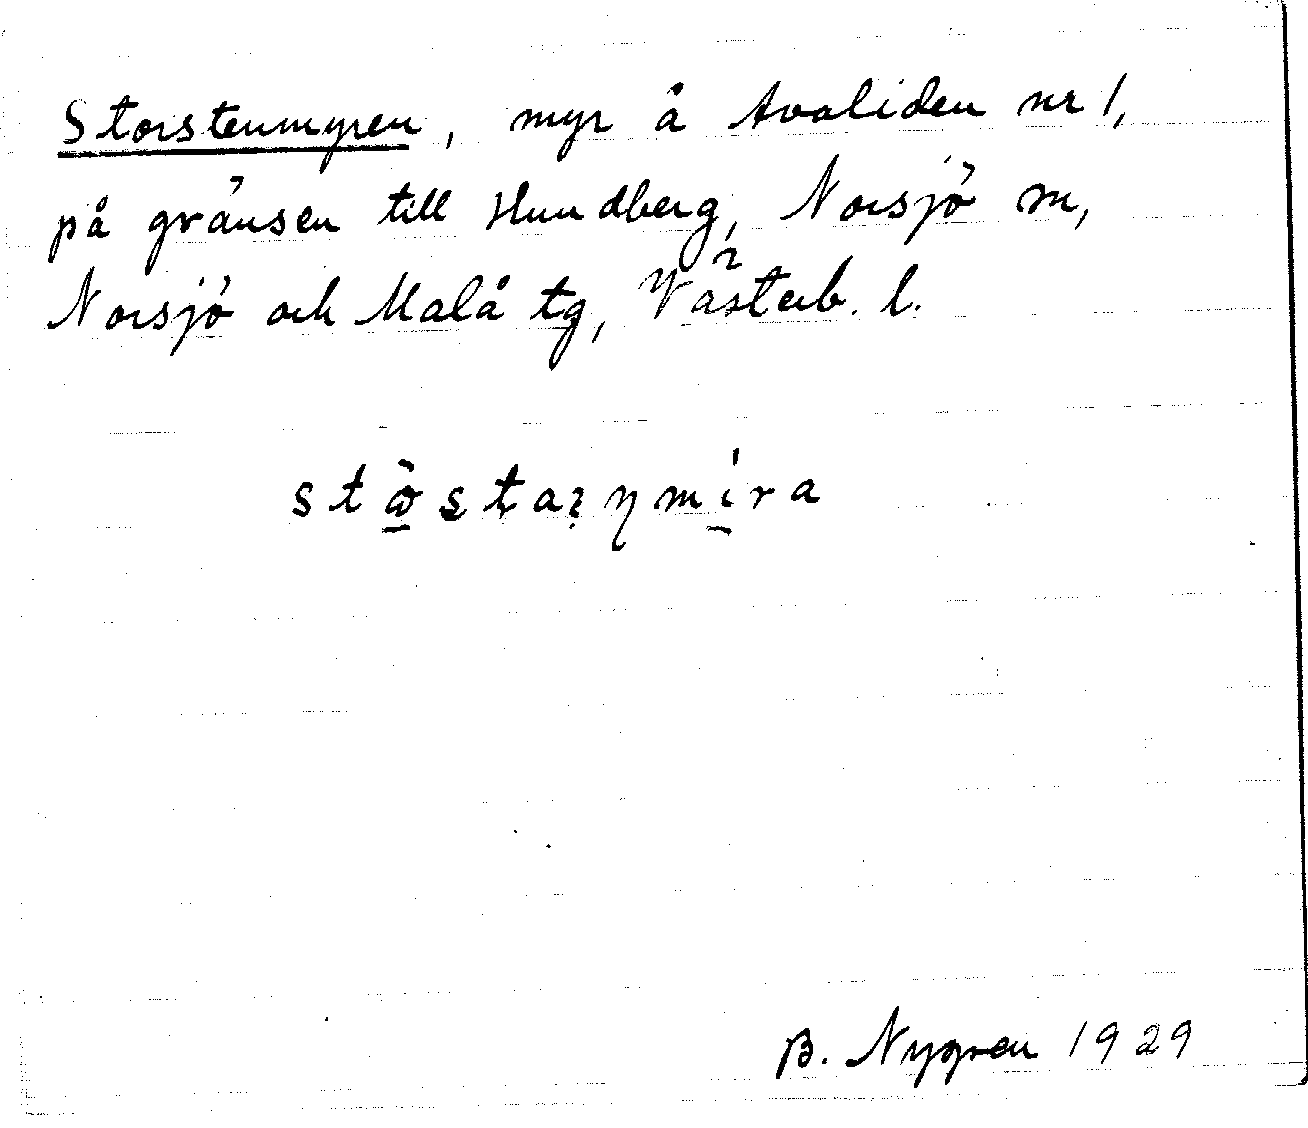 Storstenmyren, myr å Avaliden nr 1,
på gränsen till Hundberg, Norsjö sn,
Norsjö och Malå tg, Västerb. l.
B. Nygren 1929